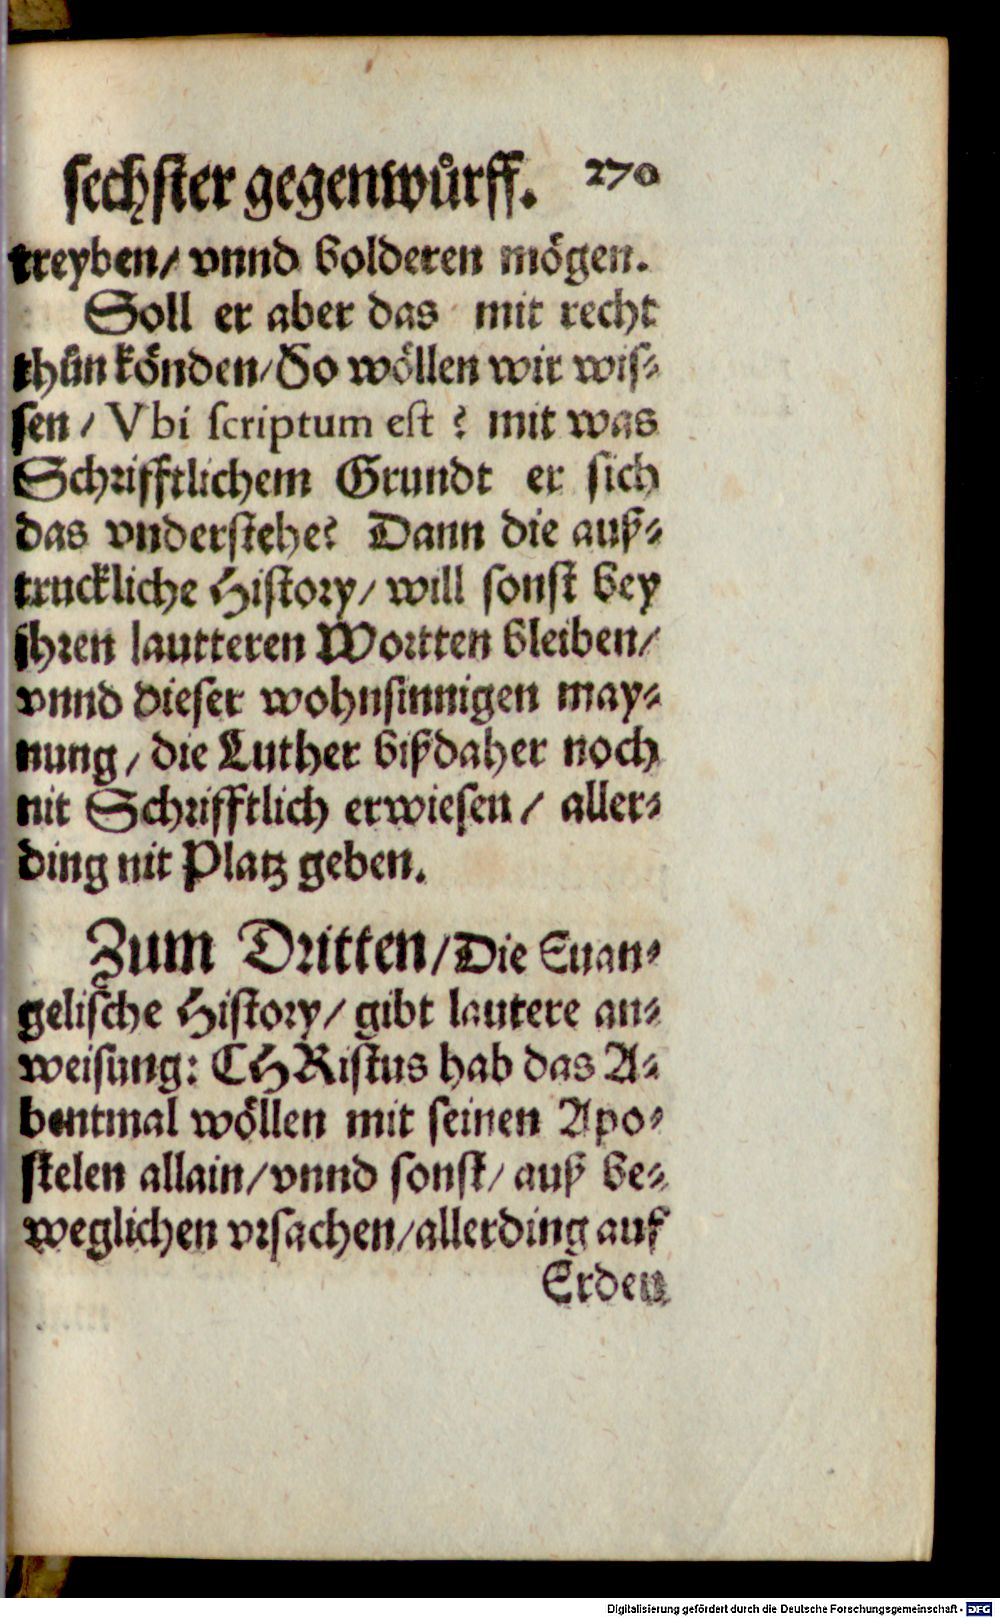 sechster gegenwůrff. 270
treyben/ vnnd bolderen mögen.
Soll er aber das mit recht
thůn könden/ So wöllen wir wis-
sen/ Vbi scriptum est? mit was
Schrifftlichem Grundt er sich
das vnderstehe? Dann die auß-
truckliche History/ will sonst bey
ihren lautteren Wortten bleiben/
vnnd dieser wohnsinnigen may-
nung/ die Luther bißdaher noch
nit Schrifftlich erwiesen/ aller-
ding nit Platz geben.
Zum Dritten/ Die Euan-
gelische History/ gibt lautere an-
weisung: CHRistus hab das A-
bentmal wöllen mit seinen Apo-
stelen allain/ vnnd sonst/ auß be-
weglichen vrsachen/ allerding auf
Erden
Digitalisierung gefördert durch die Deutsche Forschungsgemeinschaft - DFG